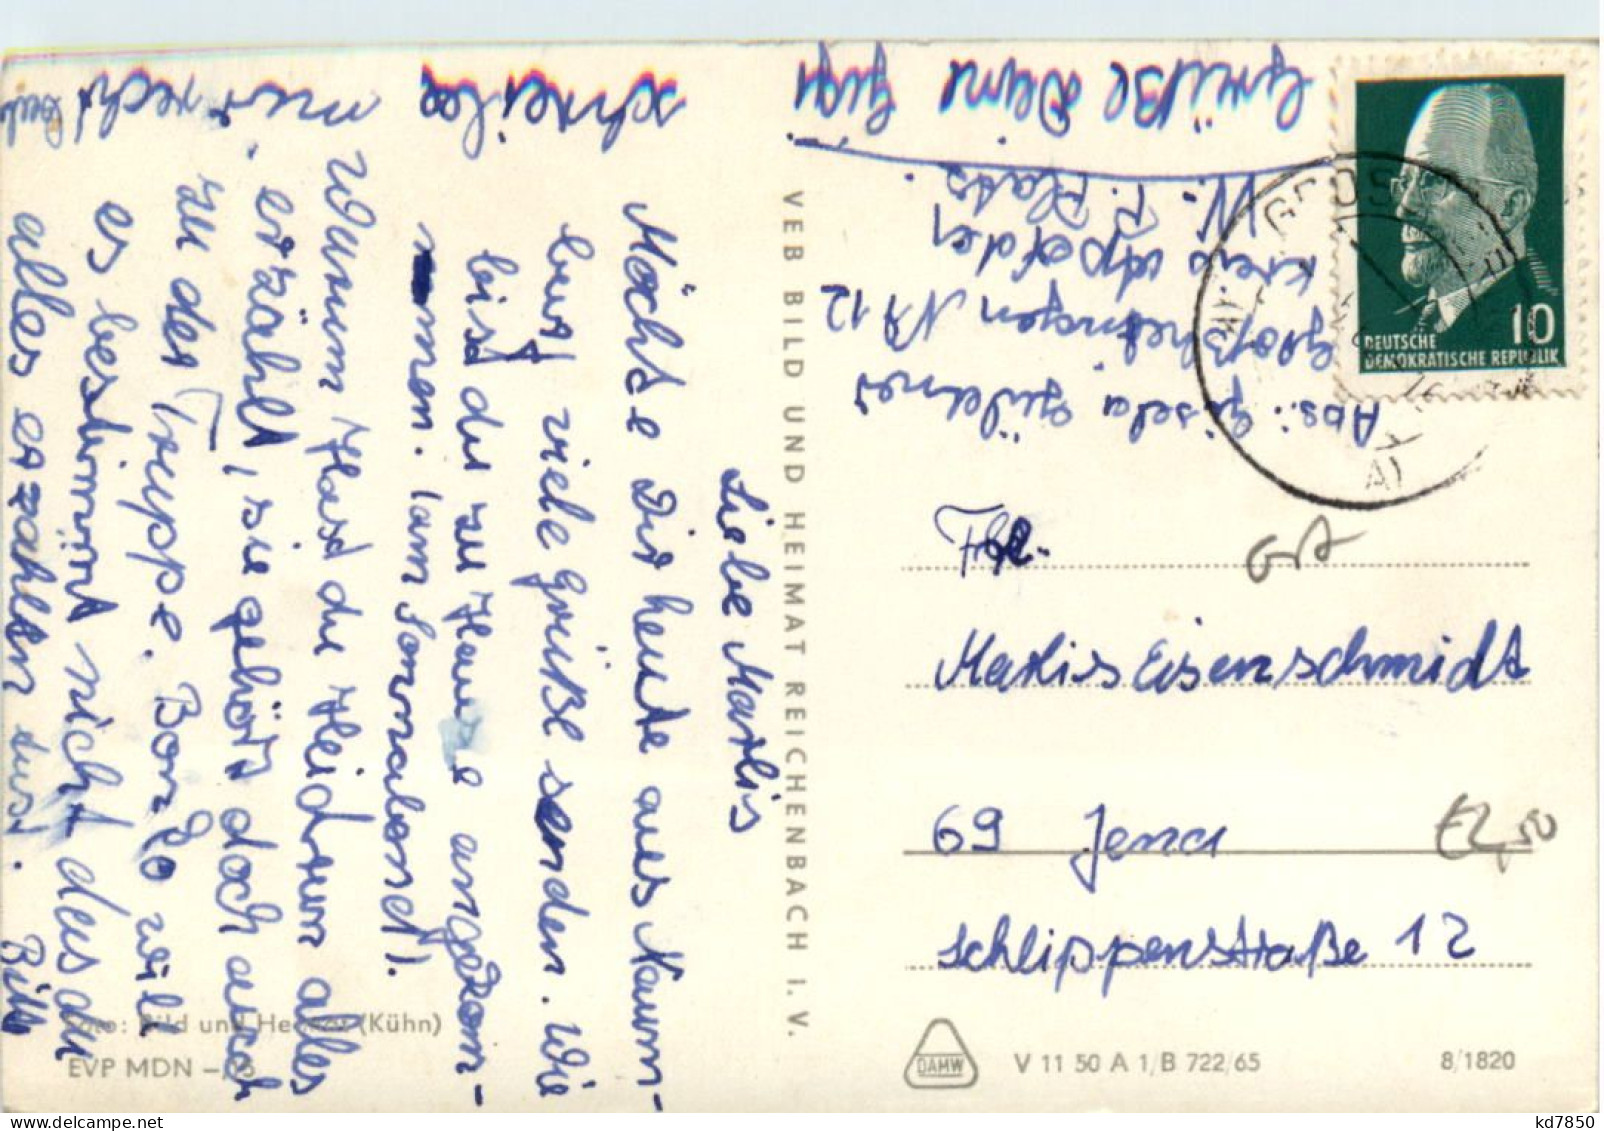 Liebe Marlis
Möchte Dir heute aus Naum-
burg viele Grüße senden. Wie
bist du zu Hause angekom-
mmen. (am Sonnabend).
Warum Hast du Heidrun alles
erzählt, sie gehört doch auch
zu der Truppe. Bor Ro will
es bestimmt nicht das du
alles erzählen tust. Bitte
mir recht
schreibe
Grüße Deine Gigi
Abs.: Gisela
Großheringen Nr 12
Kreis Apolda
VEB BILD UND HEIMAT REICHENBACH I. V.
DEUTSCHE
DEMOKRATISCHE REPUBLIK
10
GROSS
Frl.
Marlis Eisenschmidt
69 Jena
Schlippenstraße 12
GA
E2,50
Foto: Bild und Heimat (Kühn)
EVP MDN
DAMW
V 11 50 A 1/B 722/65
8/1820
delcampe.net
kd7850